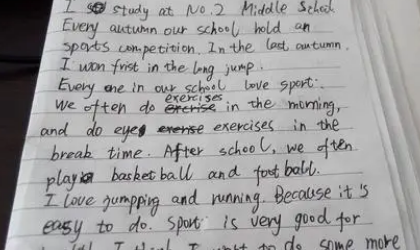 I study at No.2 Middle School
Every autumn our school hold an
sports competition. In the last autumn.
I won frist in the long jump.
Every one in our school love sport.
We often do exercises in the morning,
and do eye exercises in the
break time. After school, we often
play basketball and football.
I love jumpping and running. Because it's
easy to do. Sport is very good for
I want to do some more